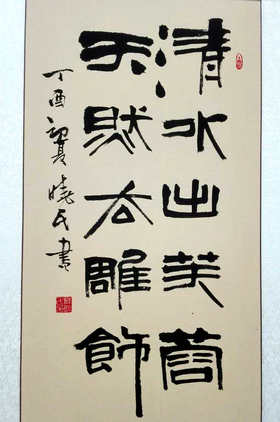 清水出芙蓉
天然去雕飾
丁酉初夏曉民書